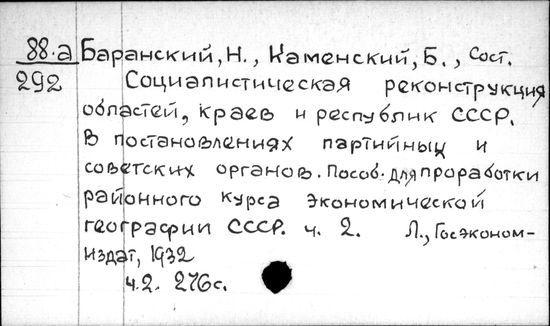 88.а Баранский, Н., Каменский, Б., Сост.
292 Социалистическая реконструкция
областей, краев и республик СССР.
В постановлениях партийных и
советских органов. Пособ. для проработки
районного курса экономической
географии СССР. ч. 2. Л., Госэконом-
издат, 1932
ч.2. 276с.